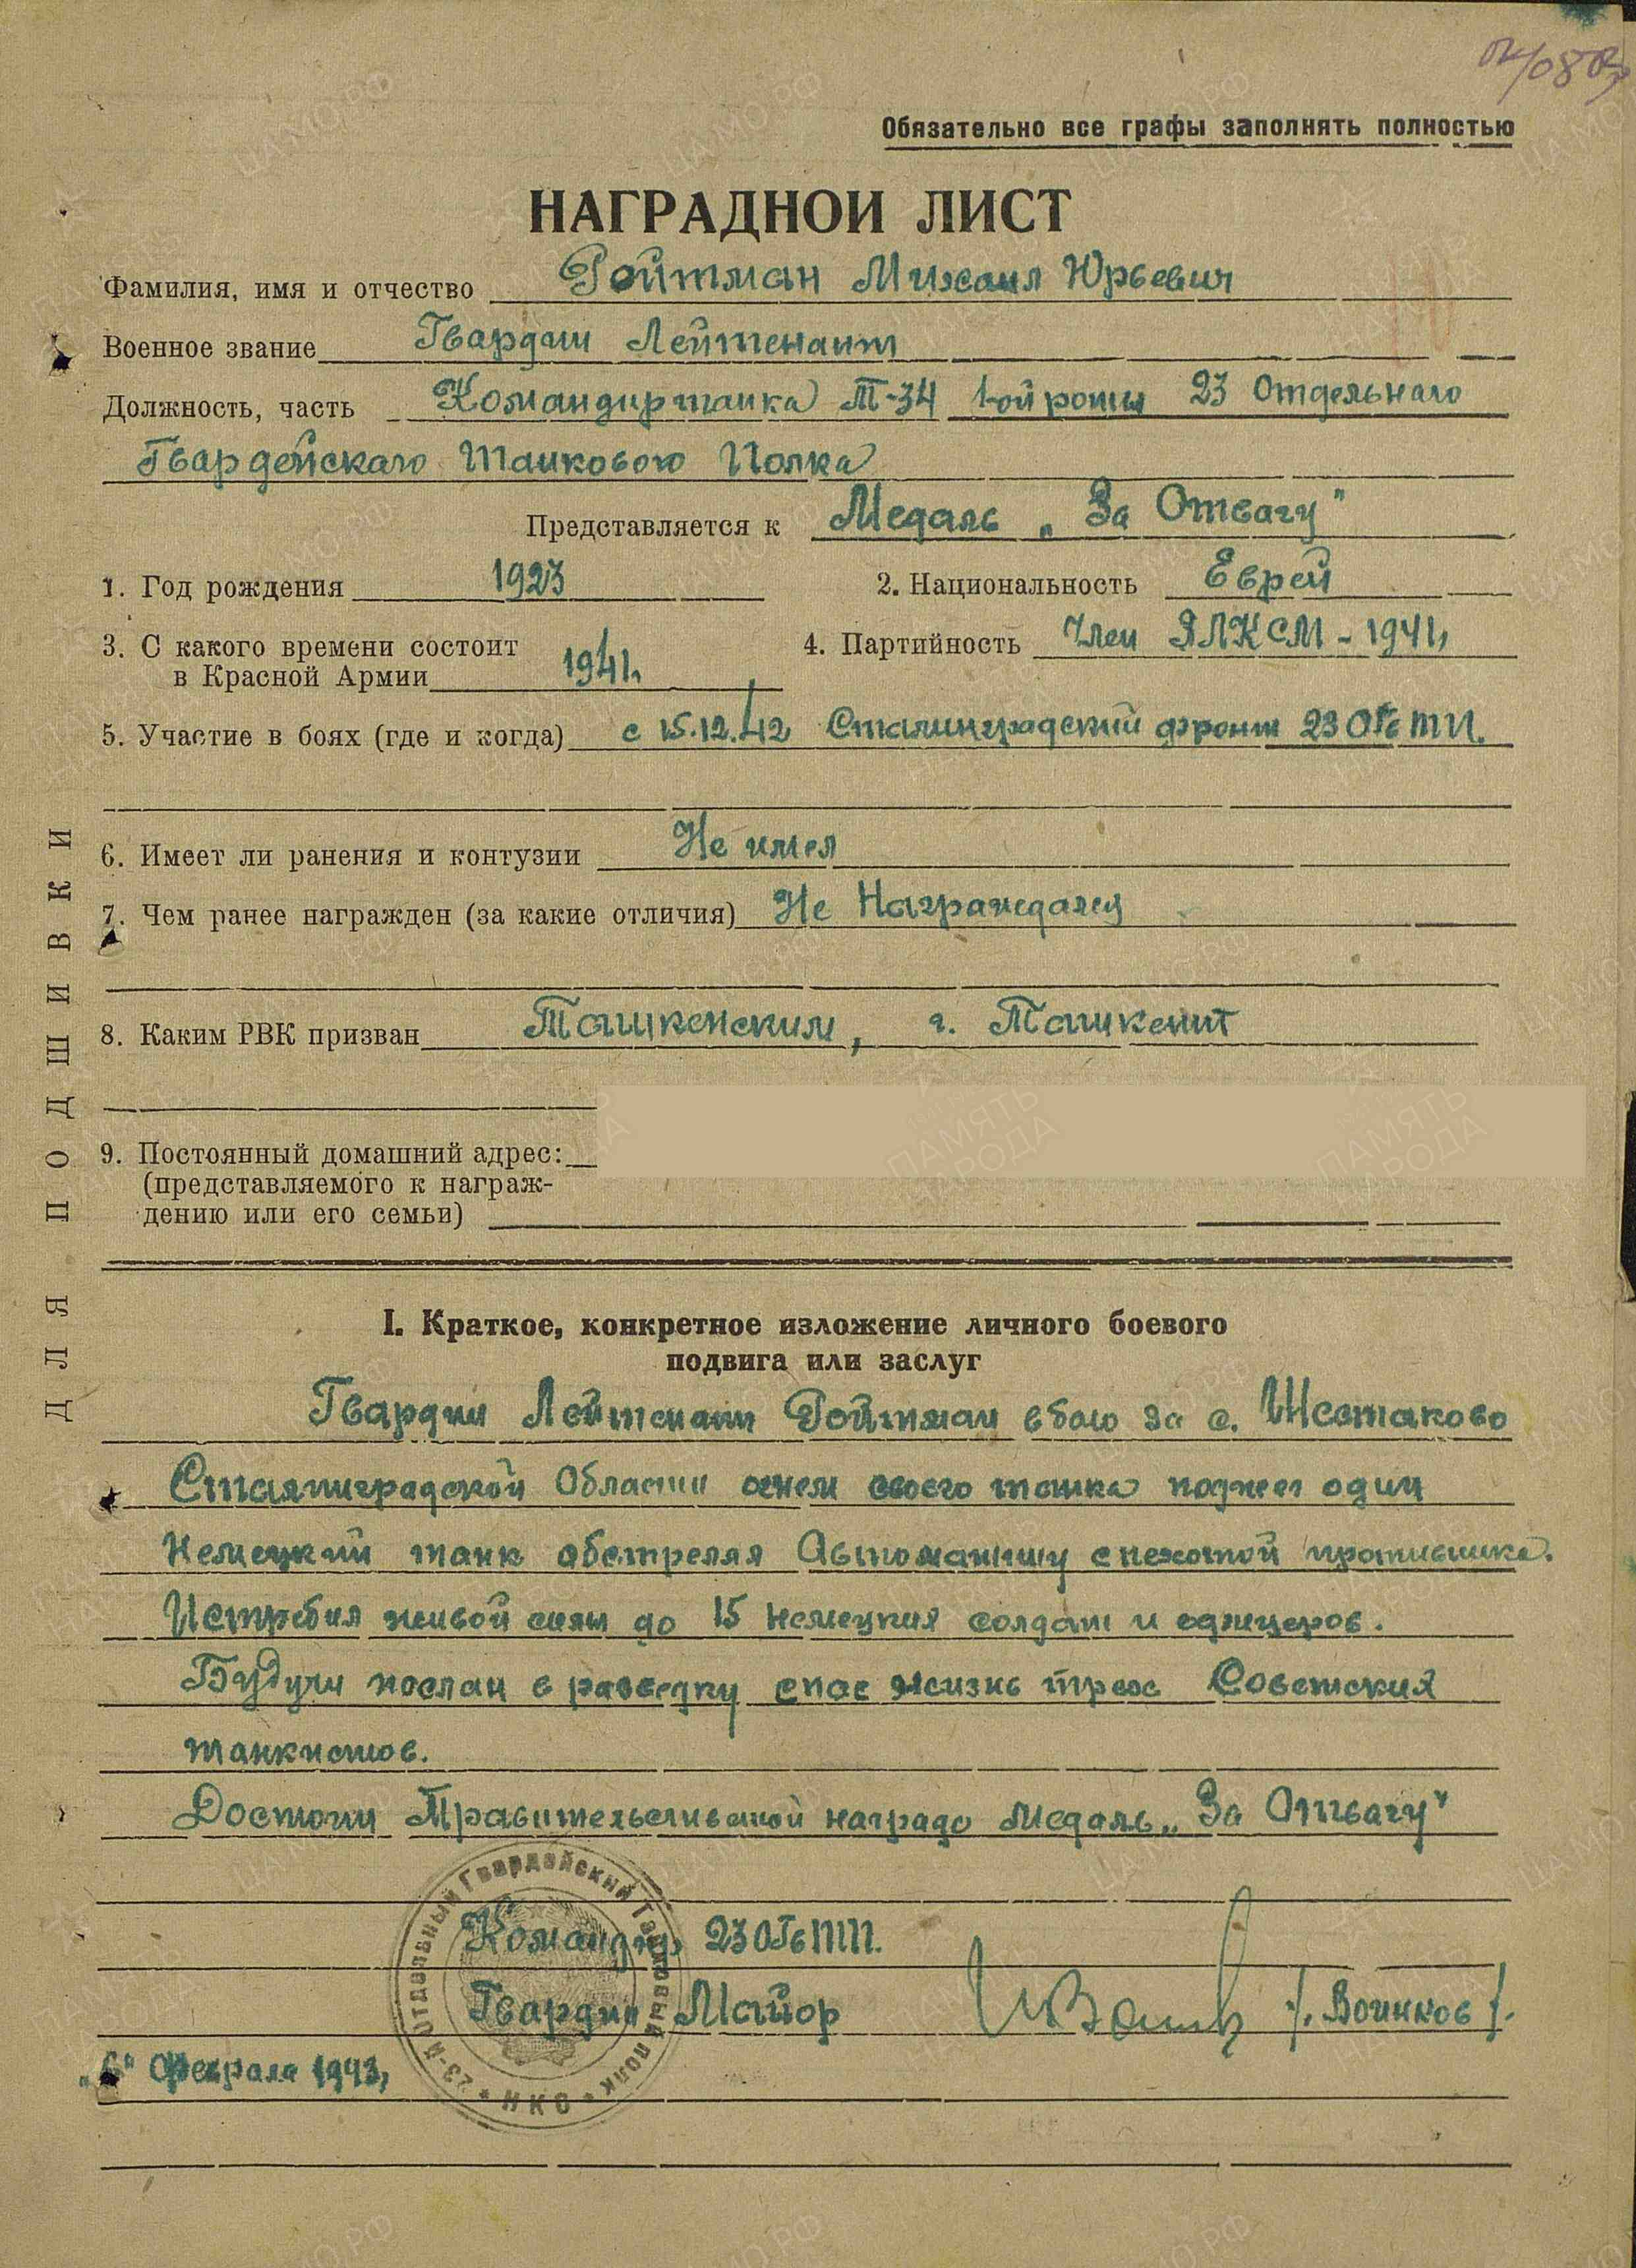 Обязательно все графы заполнять полностью
НАГРАДНОЙ ЛИСТ
Фамилия, имя и отчество Ройтман Михаил Юрьевич
Военное звание Гвардии Лейтенант
Должность, часть Командир танка Т-34 1-ой роты 23 Отдельнаго
Гвардейскаго Танкового Полка
Представляется к Медаль „За Отвагу"
1. Год рождения 1923 2. Национальность Еврей
3. С какого времени состоит 4. Партийность Член ВЛКСМ - 1941,
в Красной Армии 1941.
5. Участие в боях (где и когда) с 15.12.42 Сталинградский фронт 23 ОГв ТП.
6. Имеет ли ранения и контузии Не имел
7. Чем ранее награжден (за какие отличия) Не Награждался
8. Каким РВК призван Ташкенским, г. Ташкент
9. Постоянный домашний адрес:
(представляемого к награж-
дению или его семьи)
ДЛЯ ПОДШИВКИ
I. Краткое, конкретное изложение личного боевого
подвига или заслуг
Гвардии Лейтенант Ройтман в бою за с. Шестаково
Сталинградской Области огнем своего танка поджег один
Немецкий танк обстрелял Автомашину с пехотой противника.
Истребил живой силы до 15 немецких солдат и офицеров.
Будучи послан в разведку спас жизнь трех Советских
танкистов.
Достоин Правительственной награде Медаль „За Отвагу"
Командир 23 ОГв ТП.
Гвардии Майор /. Воинков /.
„6" Февраля 1943,
23-й Отдельный Гвардейский Танковый полк * НКО *
ПАМЯТЬ НАРОДА
ЦАМО.РФ